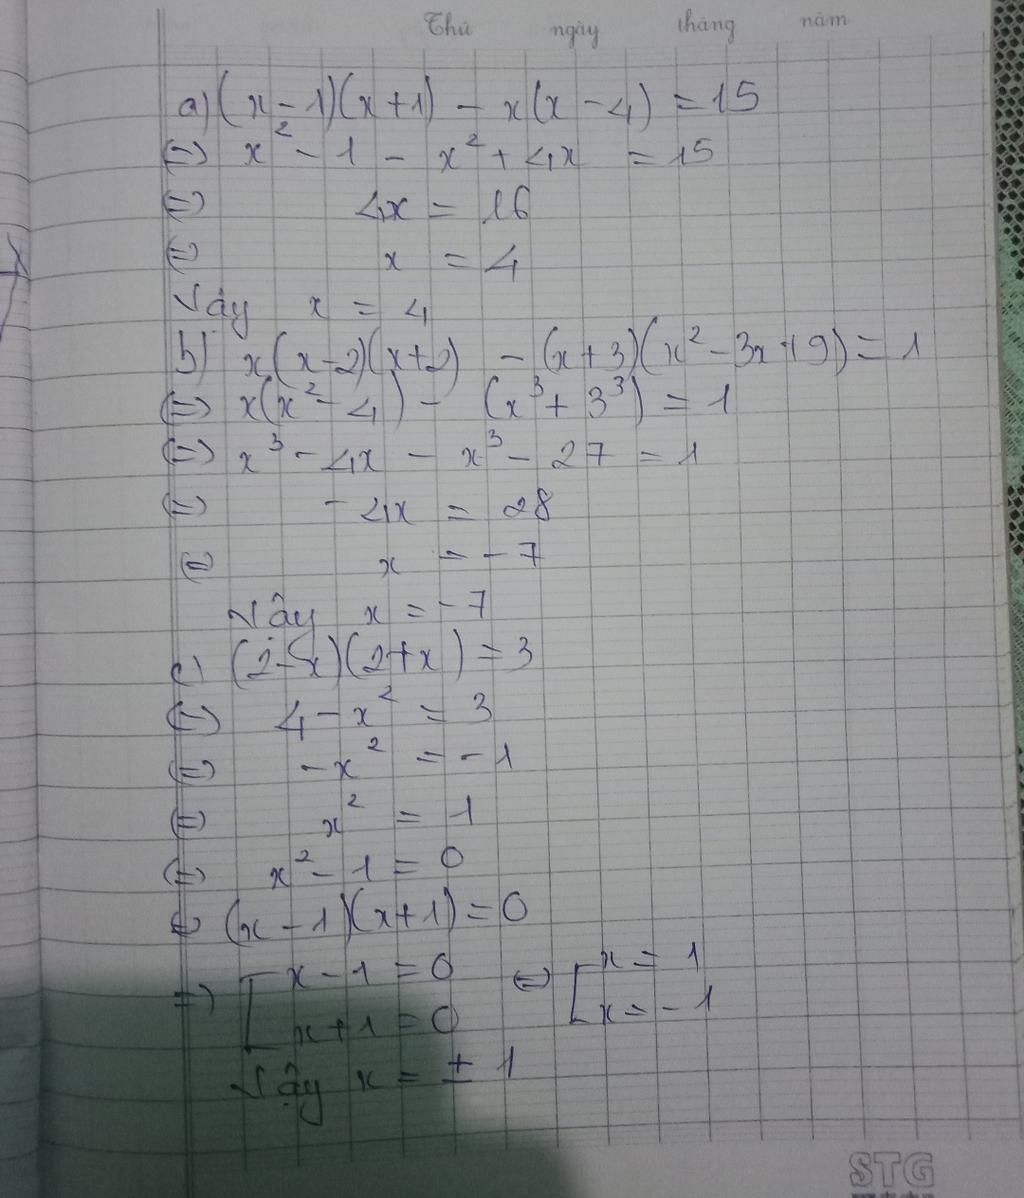 Thứ ngày tháng năm
a) (x - 1)(x + 1) - x(x - 4) = 15
(=) x² - 1 - x² + 4x = 15
(=) 4x = 16
(=) x = 4
Vậy x = 4
b) x(x - 2)(x + 2) - (x + 3)(x² - 3x + 9) = 1
(=) x(x² - 4) - (x³ + 3³) = 1
(=) x³ - 4x - x³ - 27 = 1
(=) - 4x = 28
(=) x = - 7
Vậy x = - 7
c) (2 - x)(2 + x) = 3
(=) 4 - x² = 3
(=) - x² = - 1
(=) x² = 1
(=) x² - 1 = 0
(=) (x - 1)(x + 1) = 0
=) [ x - 1 = 0 (=) [ x = 1
x + 1 = 0 x = - 1
Vậy x = ± 1
STG